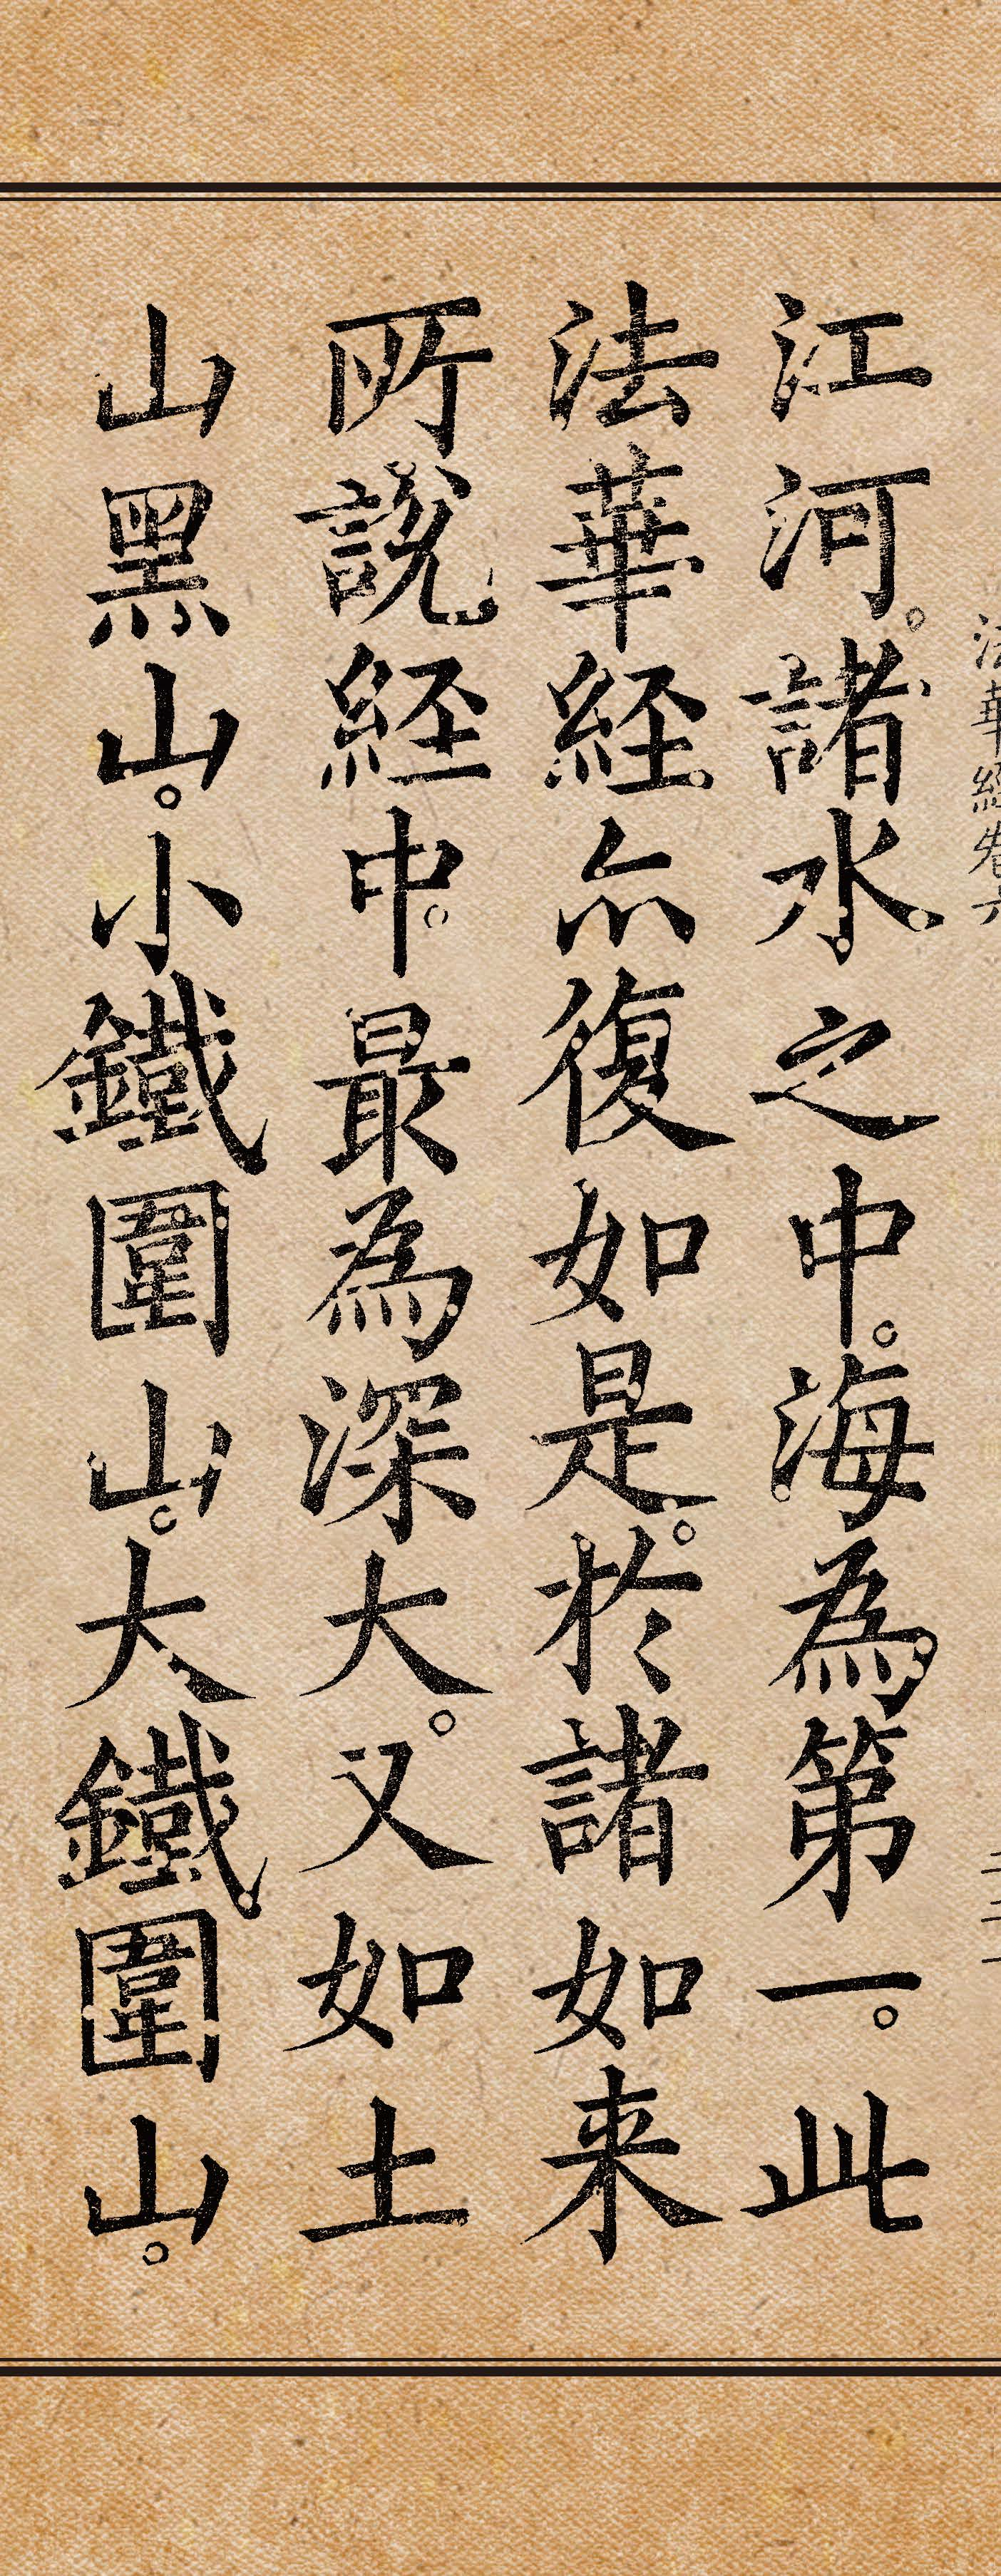 法華經卷六
江河。諸水之中。海為第一。此
法華経亦復如是。於諸如来
所說経中。最為深大。又如土
山黑山。小鐵圍山。大鐵圍山。